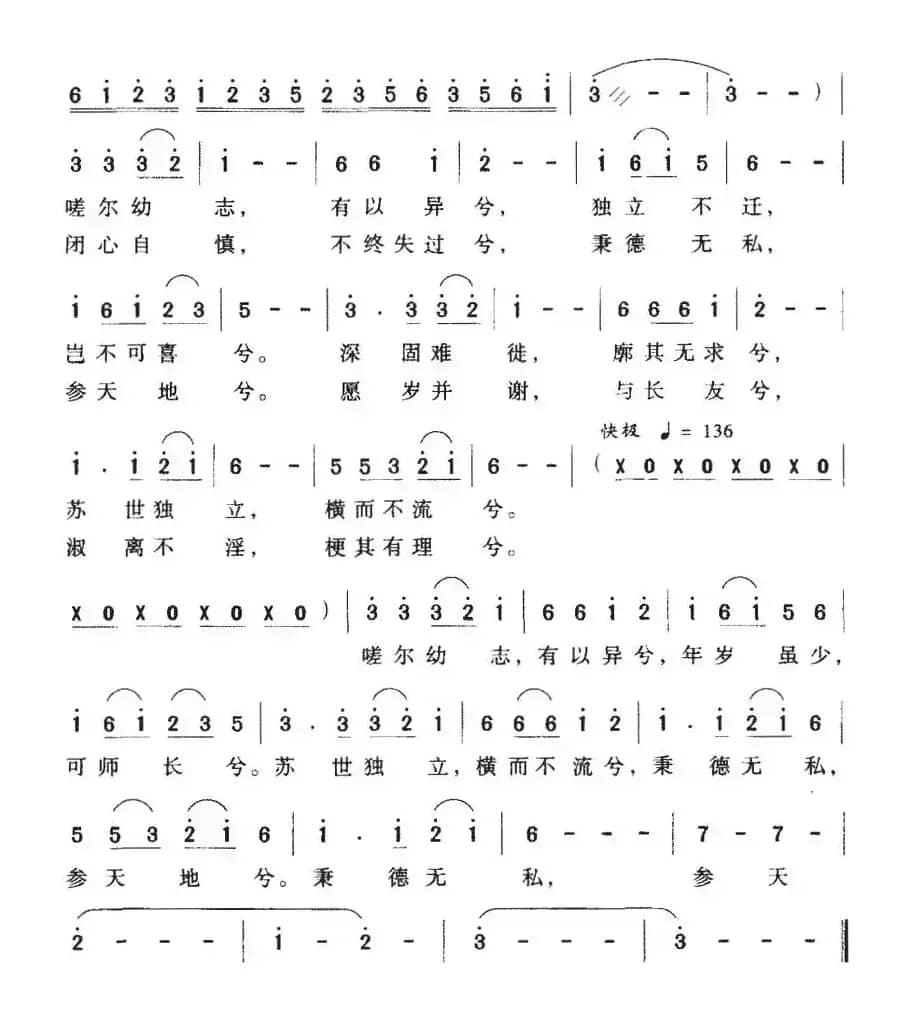 6 1 2 3 1 2 3 5 2 3 5 6 3 5 6 1 | 3 - - | 3 - - ) |
3 3 3 2 | 1 - - | 6 6 1 | 2 - - | 1 6 1 5 | 6 - - |
嗟尔幼 志， 有以 异 兮， 独立 不 迁，
闭心自 慎， 不终失过 兮， 秉德 无 私，
1 6 1 2 3 | 5 - - | 3 . 3 3 2 | 1 - - | 6 6 6 1 | 2 - - |
岂不可喜 兮。 深 固难 徙， 廓其无求 兮，
参天 地 兮。 愿 岁并 谢， 与长 友 兮，
快极 ♩ = 136
1 . 1 2 1 | 6 - - | 5 5 3 2 1 | 6 - - | ( X 0 X 0 X 0 X 0 |
苏 世独 立， 横而不流 兮。
淑 离不 淫， 梗其有理 兮。
X 0 X 0 X 0 X 0 ) | 3 3 3 2 1 | 6 6 1 2 | 1 6 1 5 6 |
嗟尔幼 志，有以异兮，年岁 虽少，
1 6 1 2 3 5 | 3 . 3 3 2 1 | 6 6 6 1 2 | 1 . 1 2 1 6 |
可师 长 兮。苏 世独 立，横而不流兮，秉 德无 私，
5 5 3 2 1 6 | 1 . 1 2 1 | 6 - - - | 7 - 7 - |
参天 地 兮。秉 德无 私， 参 天
2 - - - | 1 - 2 - | 3 - - - | 3 - - - ‖